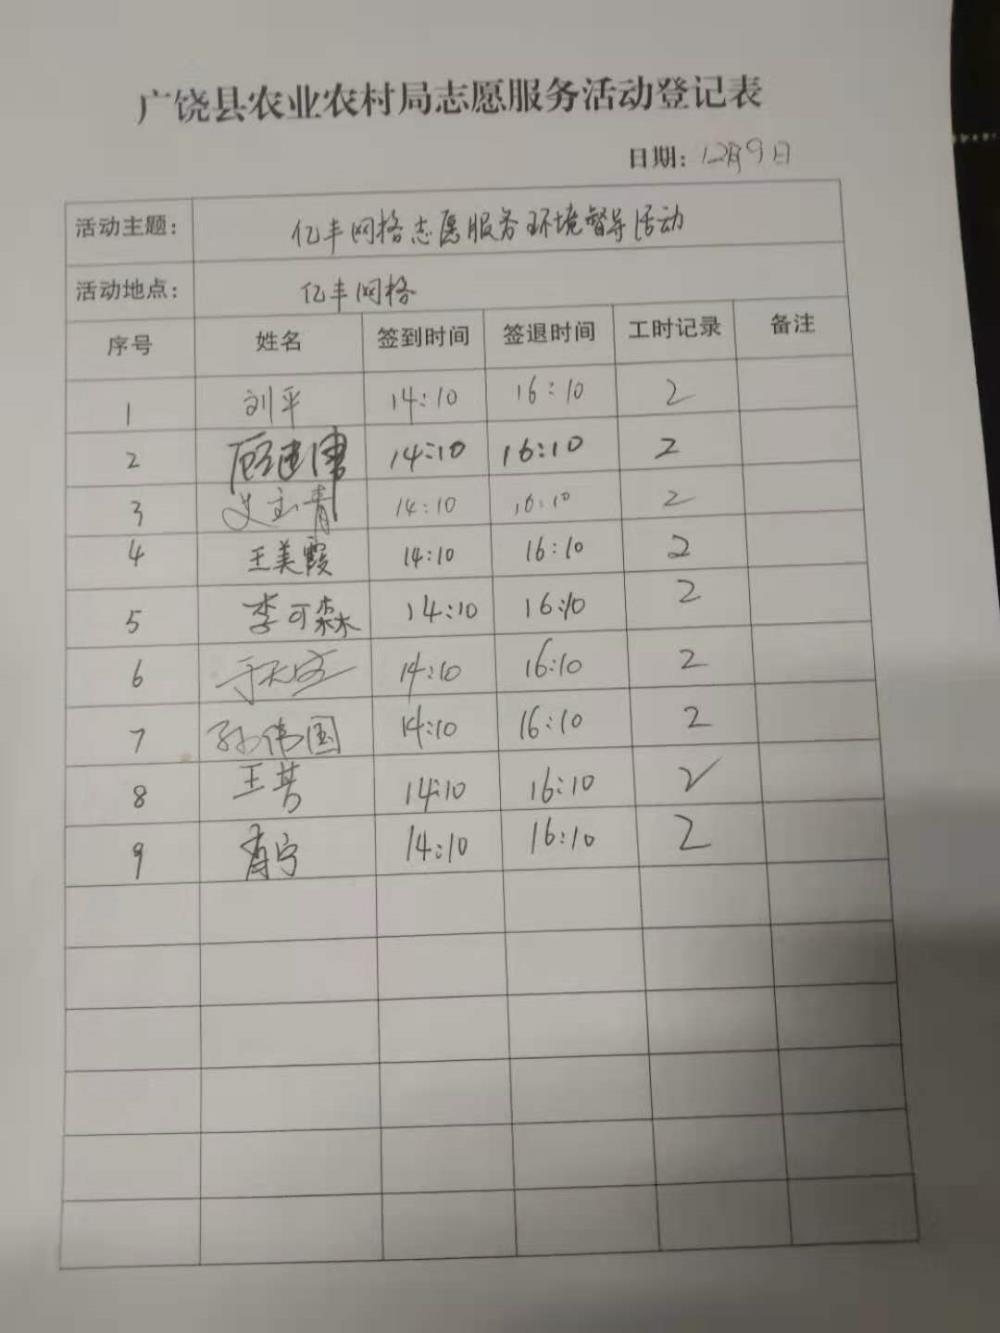 广饶县农业农村局志愿服务活动登记表
日期：12月9日
活动主题： 亿丰网格志愿服务环境督导活动
活动地点： 亿丰网格
序号 姓名 签到时间 签退时间 工时记录 备注
1 刘平 14:10 16:10 2
2 14:10 16:10 2
3 14:10 16:10 2
4 王美霞 14:10 16:10 2
5 李可森 14:10 16:10 2
6 14:10 16:10 2
7 孙伟国 14:10 16:10 2
8 王 14:10 16:10 2
9 14:10 16:10 2